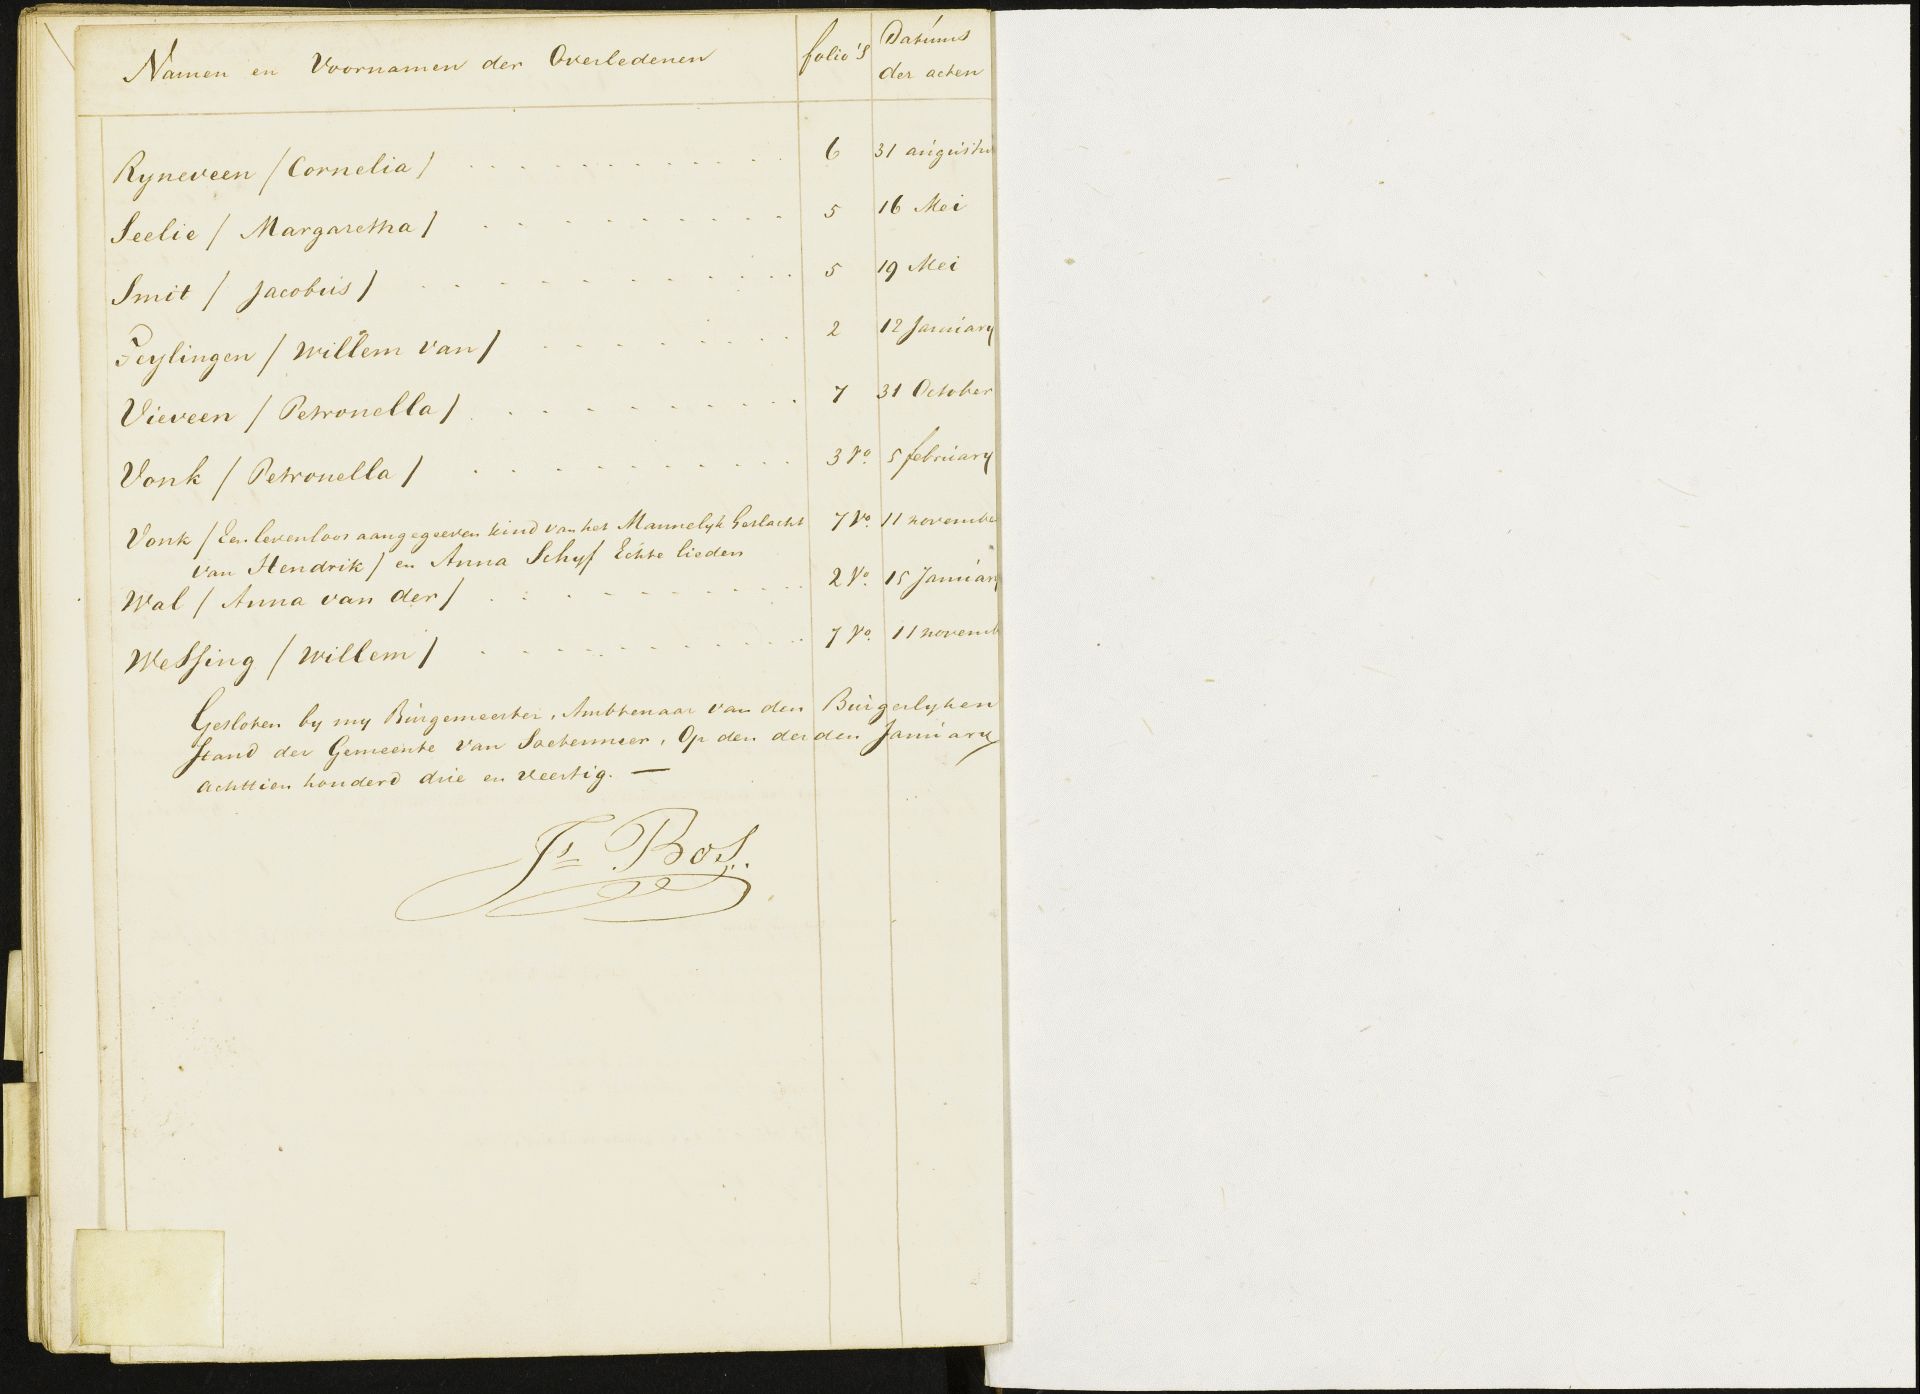 Namen en Voornamen der Overledenen folio's Datums
der acten
Ryneveen / Cornelia / 6 31 augustus
Seelie / Margaretha / 5 16 Mei
Smit / Jacobus / 5 19 Mei
Teylingen / Willem van / 2 12 January
Vieveen / Petronella / 7 31 October
Vonk / Petronella / 3 Vo. 5 february
Vonk / Een levenloos aangegeeven kind van het Mannelyk Geslacht 7 Vo. 11 novembe
van Hendrik / en Anna Schyf Echte lieden
Wal / Anna van der / 2 Vo. 15 January
Wessing / Willem / 7 Vo. 11 novemb
Gesloten by my Burgemeester, Ambtenaar van den Burgerlyken
Stand der Gemeente van Soetermeer, Op den derden January
achttien honderd drie en veertig. —
Js. Bos.